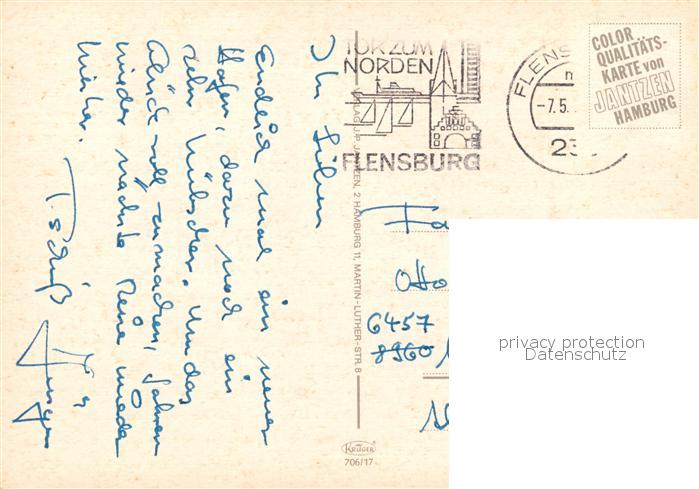 Ihr Lieben
Endlich mal ein neuer
Hafen, dazu noch ein
sehr hübscher. Um das
Glück voll zu machen, fahren
wir der nächste Reise wieder
hierher.
Tschüß
Jürgen
TOR ZUM
NORDEN
FLENSBURG
FLENS
-7.5.
23
COLOR
QUALITÄTS-
KARTE von
JANTZEN
HAMBURG
VERLAG J.P. JANTZEN, 2 HAMBURG 11, MARTIN-LUTHER-STR. 8
Otto
6457
8960
KRÜGER
706/17
privacy protection
Datenschutz